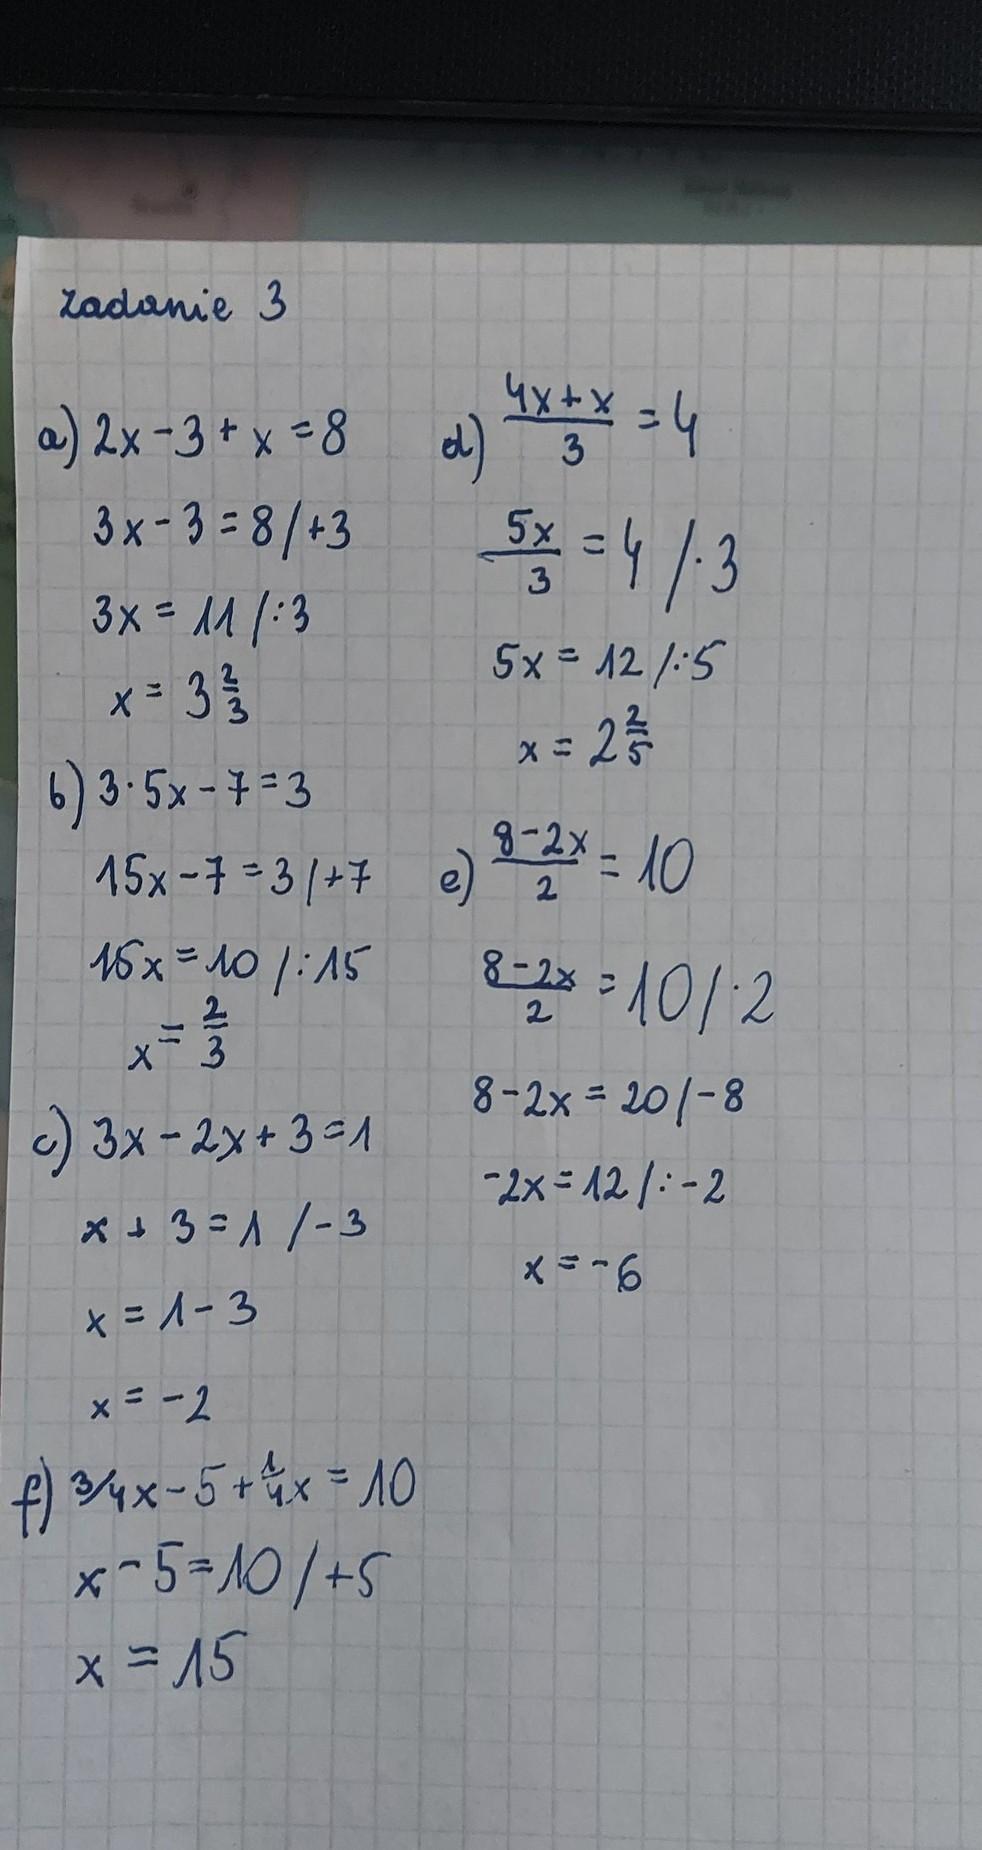 Zadanie 3
a) 2x - 3 + x = 8
3x - 3 = 8 /+3
3x = 11 /:3
x = 3 2/3
b) 3·5x - 7 = 3
15x - 7 = 3 /+7
15x = 10 /:15
x = 2/3
c) 3x - 2x + 3 = 1
x + 3 = 1 /-3
x = 1 - 3
x = -2
f) 3/4x - 5 + 1/4x = 10
x - 5 = 10 /+5
x = 15
d) (4x + x)/3 = 4
5x/3 = 4 /·3
5x = 12 /:5
x = 2 2/5
e) (8 - 2x)/2 = 10
(8 - 2x)/2 = 10 /·2
8 - 2x = 20 /-8
-2x = 12 /:-2
x = -6